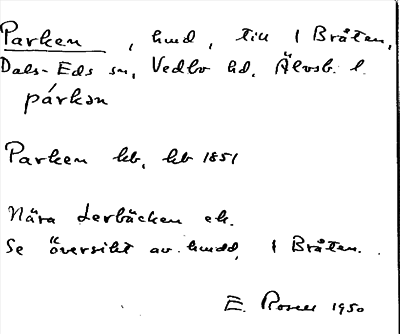 Parken, hmd, till 1 Bråten,
Dals-Eds sn, Vedbo hd, Älvsb. l.
párkən
Parken hb, hb 1851
Nära Lerbäcken ek.
Se översikt av hmdd, 1 Bråten.
E. 1950